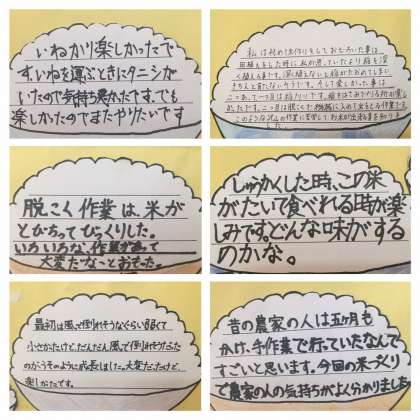 いねかり楽しかったで
す。いねを運ぶときにタニシが
いたので気持ち悪かったです。でも
楽しかったのでまたやりたいです
私は初め米作りをしておどろいた事は
田植えをした時に私が思っていたより稲を深
く植える事です。深く植えないと稲がたおれてしまい
きちんと育たないそうです。そして楽しかった事は
このような沢山の作業に苦労してお米が出来る事を知りま
した。
脱こく作業は、米が
とびちってびっくりした。
いろいろな、作業があって
大変だなことおもった。
しゅうかくした時、この米
がたいて食べれる時が楽
しみです。どんな味がする
のかな。
最初は風で倒れそうなぐらい弱くて
小さかったけど、だんだん風で倒れそうだった
のがうそのように成長しました。大変だったけど、
楽しかったです。
昔の農家の人は五ヶ月も
かけ、手作業で行っていたなんて
すごいと思います。今回の米づくり
で農家の人の気持ちがよく分かりました